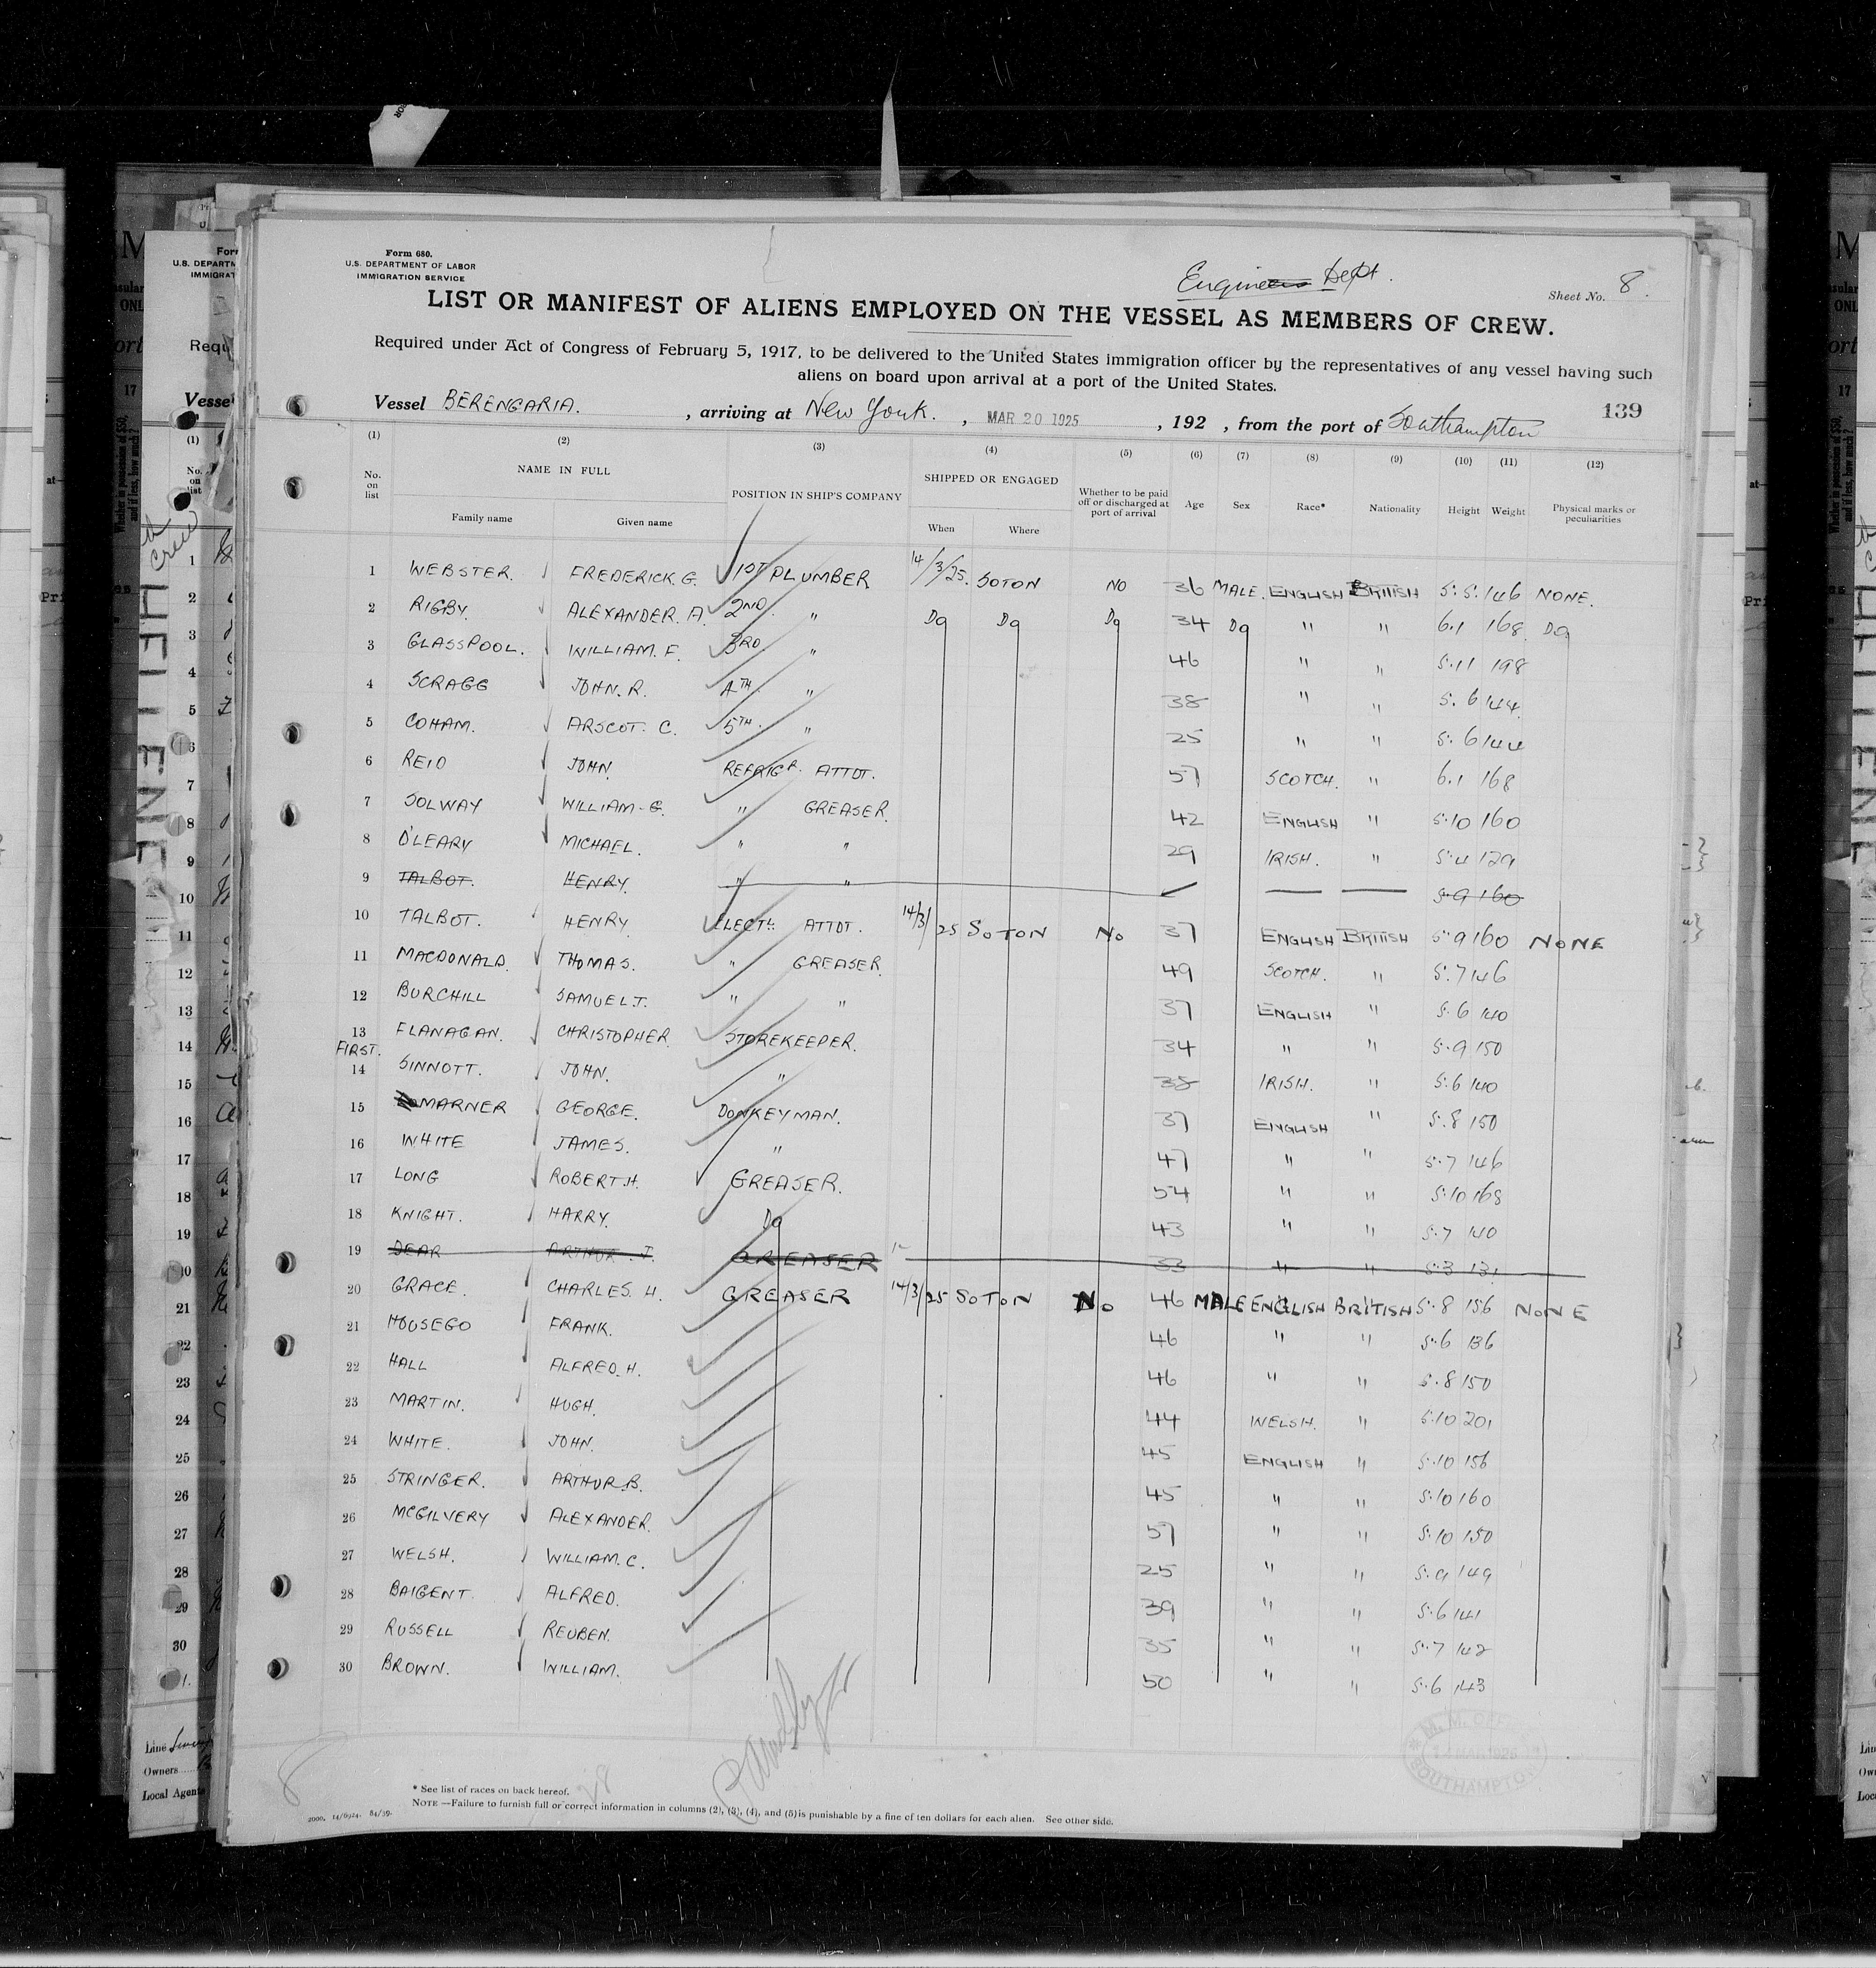 Form 680.
U.S. DEPARTMENT OF LABOR
IMMIGRATION SERVICE
Engineers Dept.
Sheet No. 8.
LIST OR MANIFEST OF ALIENS EMPLOYED ON THE VESSEL AS MEMBERS OF CREW.
Required under Act of Congress of February 5, 1917, to be delivered to the United States immigration officer by the representatives of any vessel having such
aliens on board upon arrival at a port of the United States.
Vessel BERENGARIA. , arriving at New York. , MAR 20 1925 , 192 , from the port of Southampton
139
(1) (2) (3) (4) (5) (6) (7) (8) (9) (10) (11) (12)
No. on list NAME IN FULL Family name Given name POSITION IN SHIP'S COMPANY SHIPPED OR ENGAGED When Where Whether to be paid off or discharged at port of arrival Age Sex Race* Nationality Height Weight Physical marks or peculiarities
1 WEBSTER. FREDERICK. G. 1ST PLUMBER 14/3/25. SOTON NO 36 MALE. ENGLISH BRITISH 5.5. 146 NONE.
2 RIGBY. ALEXANDER. A. 2ND. " Do Do Do 34 Do " " 6.1 168 Do
3 GLASSPOOL. WILLIAM. F. 3RD. " 46 " " 5.11 198
4 SCRAGG JOHN. R. 4TH. " 38 " " 5.6 144.
5 COHAM. ARSCOT. C. 5TH. " 25 " " 5.6 144
6 REID JOHN. REFRIGR. ATTDT. 57 SCOTCH. " 6.1 168
7 SOLWAY WILLIAM-G. " GREASER. 42 ENGLISH " 5.10 160
8 O'LEARY MICHAEL. " " 29 IRISH. " 5.4 129
9 TALBOT. HENRY. " " 5.9 160
10 TALBOT. HENRY ELECTL. ATTDT. 14/3/25 SOTON No 37 ENGLISH BRITISH 5.9 160 NONE
11 MACDONALD. THOMAS. " GREASER. 49 SCOTCH. " 5.7 146
12 BURCHILL SAMUEL.J. " " 37 ENGLISH " 5.6 140
13 FLANAGAN. CHRISTOPHER. STOREKEEPER. 34 " " 5.9 150
FIRST.
14 SINNOTT. JOHN. " 38 IRISH. " 5.6 140
15 MARNER GEORGE. DONKEYMAN. 37 ENGLISH " 5.8 150
16 WHITE JAMES. " 47 " " 5.7 146
17 LONG ROBERT.H. GREASER. 54 " " 5.10 168
18 KNIGHT. HARRY. Do 43 " " 5.7 140
19 DEAR ARTHUR. J. GREASER 33 " " 5.3 131
20 GRACE. CHARLES. H. GREASER 14/3/25 SOTON No 46 MALE ENGLISH BRITISH 5.8 156 NONE
21 HOUSEGO FRANK. 46 " " 5.6 136
22 HALL ALFRED. H. 46 " " 5.8 150
23 MARTIN. HUGH. 44 WELSH. " 5.10 201
24 WHITE. JOHN. 45 ENGLISH " 5.10 156
25 STRINGER. ARTHUR.B. 45 " " 5.10 160
26 MCGILVERY ALEXANDER. 57 " " 5.10 150
27 WELSH. WILLIAM. C. 25 " " 5.9 149
28 BAIGENT ALFRED. 39 " " 5.6 141
29 RUSSELL REUBEN. 35 " " 5.7 142
30 BROWN. WILLIAM. 50 " " 5.6 143
8
28
* See list of races on back hereof.
NOTE —Failure to furnish full or correct information in columns (2), (3), (4), and (5) is punishable by a fine of ten dollars for each alien. See other side.
2000. 14/6924. 84/39.
SOUTHAMPTON
Line
Owners
Local Agents